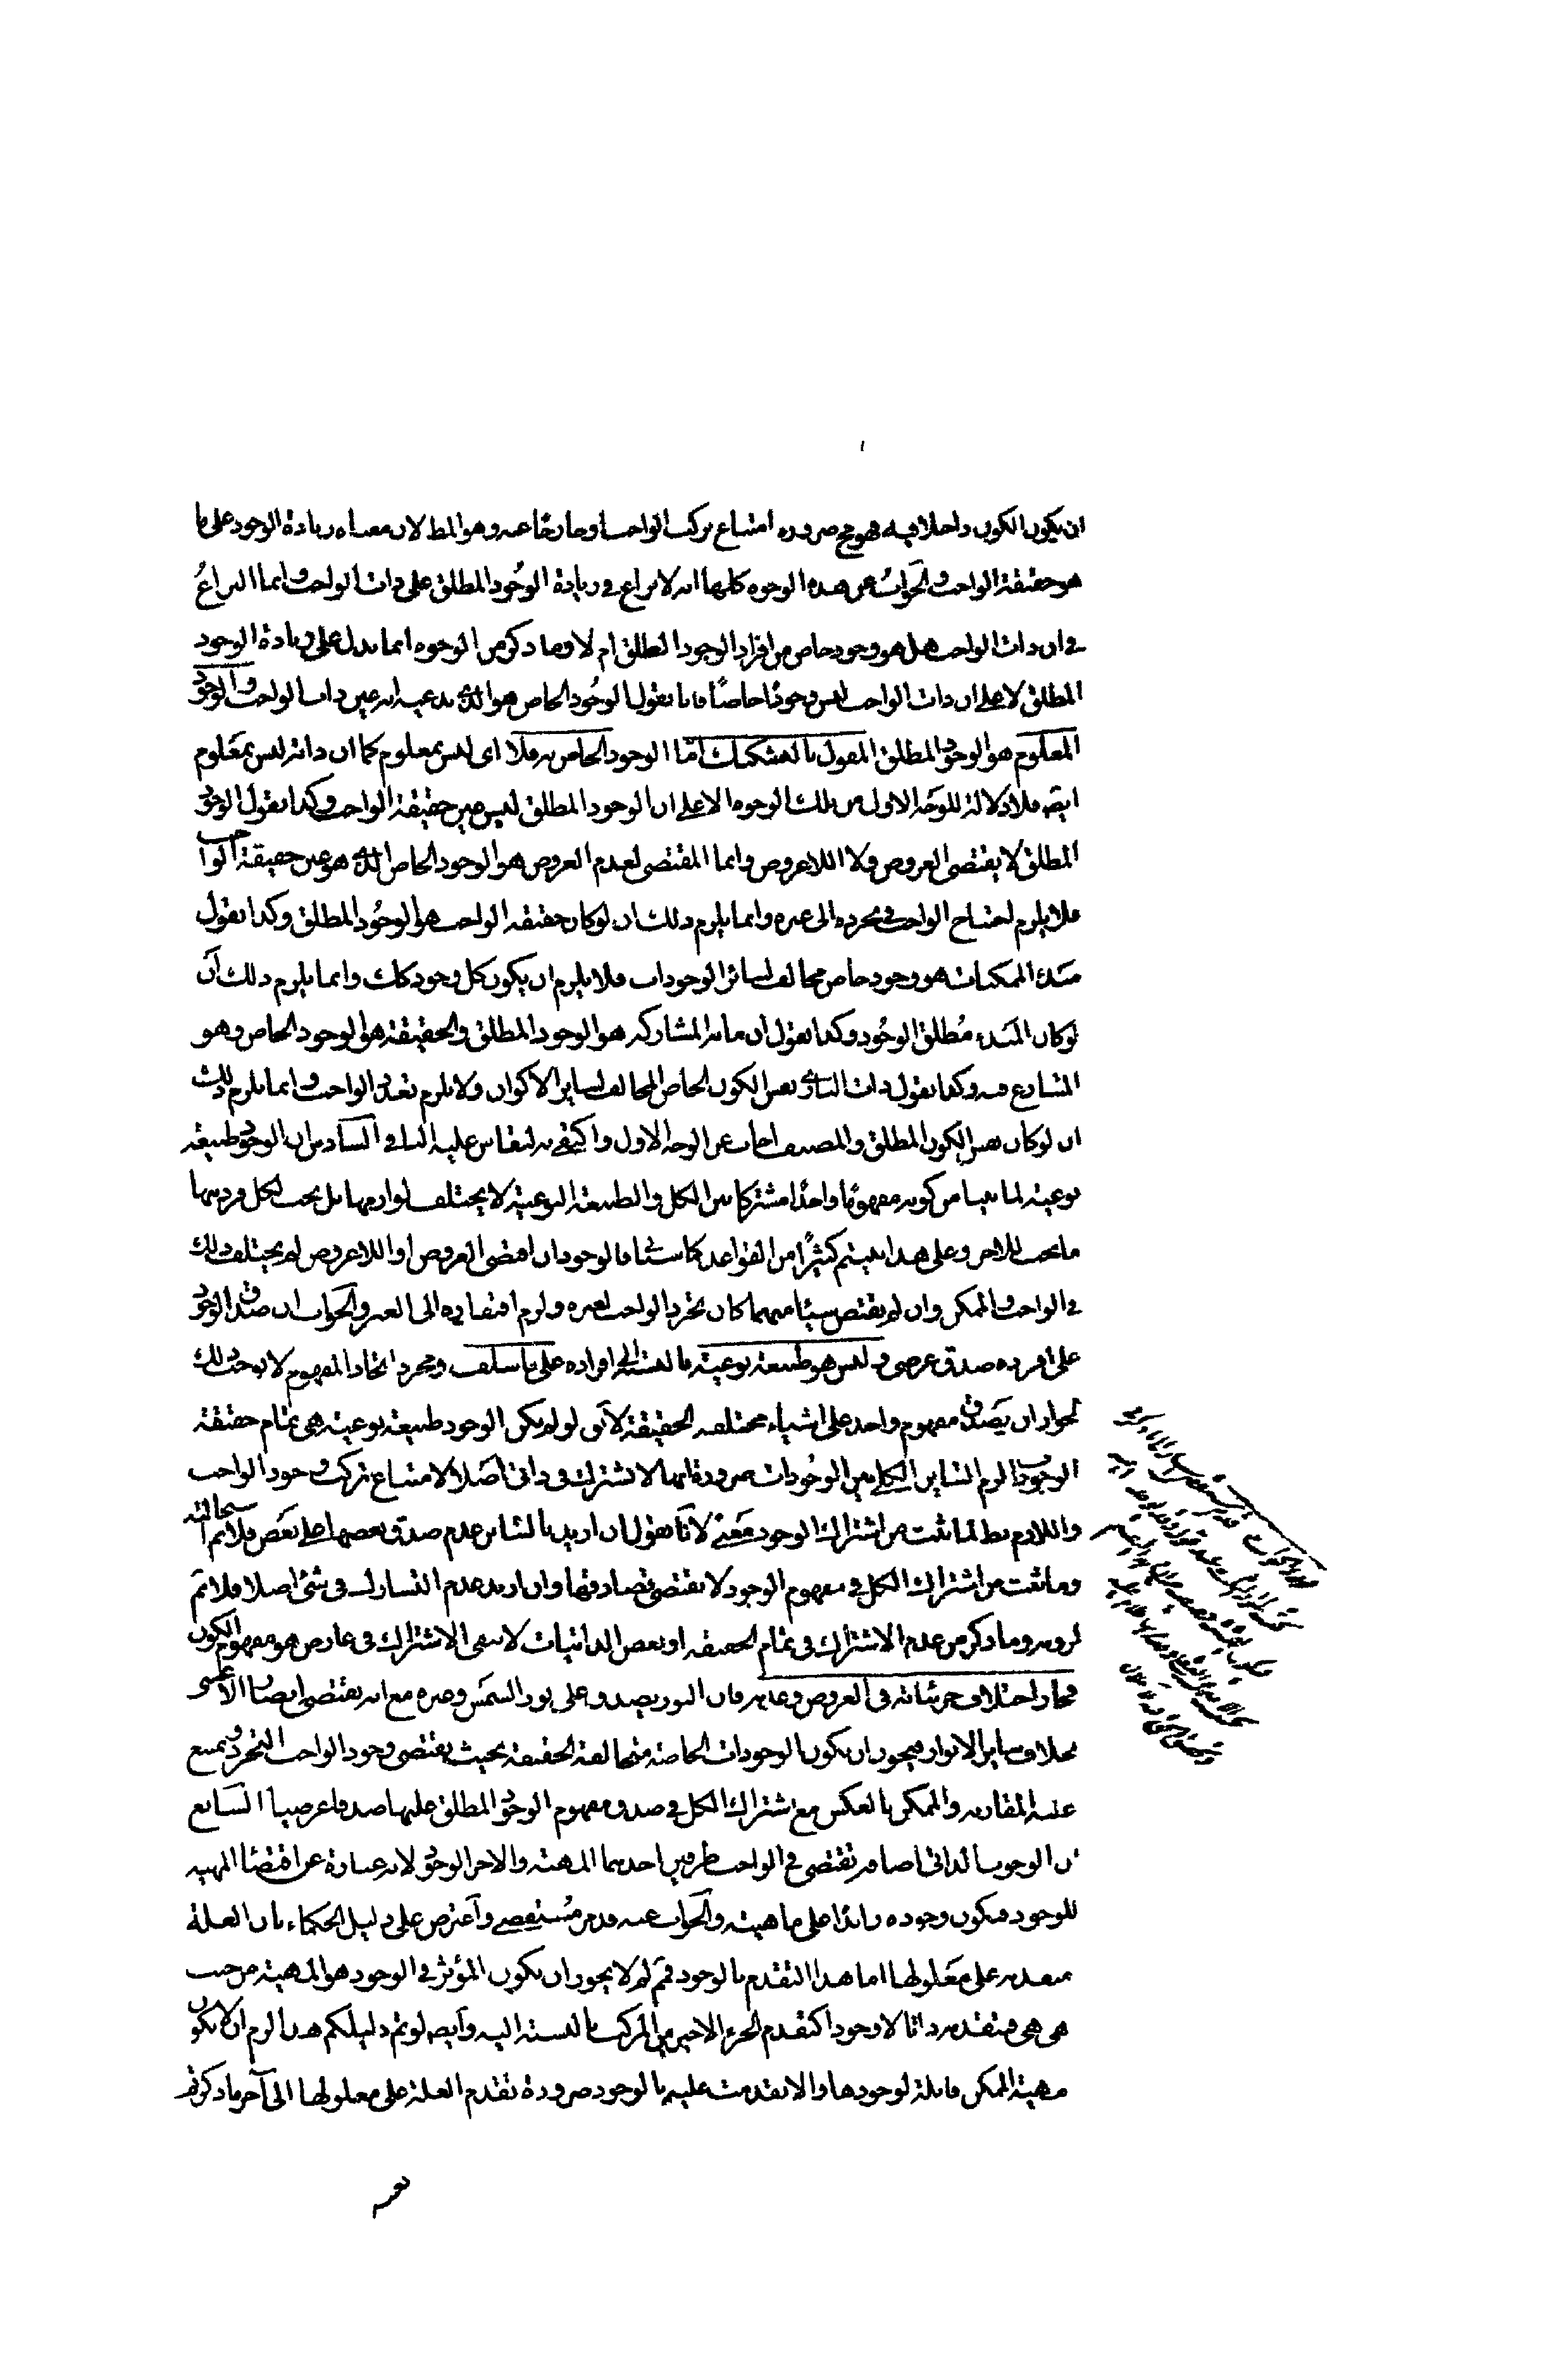 ان يكون الكون داخلا فيه فهو مح ضرورة امتناع تركب الواجب او خارجًا عنه وهو المط لان معناه زيادة الوجود على ما
هو حقيقة الواجب والجوابُ عن هذه الوجوه كلها انه لا نزاع في زيادة الوجُود المطلق على ذات الواجب وانما النزاعُ
في ان ذات الواجب هل هو وجود خاص من افراد الوجود المطلق ام لا وما ذكر من الوجوه انما يدل على زيادة الوجود
المطلق لا على ان ذات الواجب ليس وجودًا خاصًا فانا نقول الوجُود الخاص هو الذي ندعيه انه عين ذات الواجب والوجود
المعلوم هو الوجود المطلق المقول بالتشكيك امّا الوجود الخاص به فلا اى ليس بمعلوم كما ان ذاته ليس بمعَلوم
ايضه فلا دلالة للوَجه الاول من تلك الوجوه الا على ان الوجود المطلق ليس عين حقيقة الواجب وكذا نقول الوجود
المطلق لا يقتضى العروض ولا اللاعروض وانما المقتضى لعدم العروض هو الوجود الخاص الذي هو عين حقيقة الواجب
فلا يلزم احتياج الواجب في تجرده الى غيره وانما يلزم ذلك ان لو كان حقيقة الواجب هو الوجُود المطلق وكذا نقول
مبدء الممكنات هو وجود خاص مخالف لسائر الوجودات فلا يلزم ان يكون كل وجود كك وانما يلزم ذلك ان
لو كان المبَدء مُطلق الوجُود وكذا نقول ان ما به المشاركه هو الوجود المطلق والحقيقة هو الوجود الخاص وهو
المتنازع فيه وكذا نقول ذات البارى نفس الكون الخاص المخالف لساير الاكوان ولا يلزم تعدد الواجب وانما يلزم ذلك
ان لو كان نفس الكون المطلق والمصنف اجاب عن الوجه الاول واكتفى به ليقاس عليه الباقى السادس ان الوجود طبيعة
نوعية لما بينا من كونه مفهومًا واحدًا مشتركا بين الكل والطبيعة النوعية لا يختلف لوازمها بل يجب لكل فرد منها
ما يجب للاخر وعلى هذا يبتنى كثيرًا من القواعد كما سياتى فالوجود ان اقتضى العروض او اللاعروض لم يختلف ذلك
في الواجب والممكن وان لم يقتض شيئا منهما كان تجرد الواجب لغيره ولزم افتقاره الى الغير والجواب ان صدق الوجود
على افراده صدق عرضى وليس هو طبيعة نوعية بالنسبة الى افراده على ما سلف ومجرد اتحاد المفهوم لا يوجب ذلك
لجواز ان يصَدق مفهوم واحد على اشياء مختلفه الحقيقة لا يق لو لم يكن الوجود طبيعة نوعيه هى تمام حقيقة
الوجودات لزم التباين الكلى بين الوجُودات ضرورة انها لا تشترك فى ذاتى اصَلا لامتناع تركب وجود الواجب
واللازم بط لما ثبت من اشتراك الوجود مَعنىً لانّا نقول ان اريد بالتباين عدم صدق بعضها على بعَض فلا نم استحالته
وما ثبت من اشتراك الكل في مفهوم الوجود لا يقتضى تصادقها وان اريد عدم التشارك فى شئ اصلا فلا نم
لزومه وما ذكر من عدم الاشتراك فى تمام الحقيقه او بعض الذاتيات لا ينفى الاشتراك فى عارض هو مفهوم الكون
فجاز اختلاف جزئياته فى العروض وعدمه فان النور يصدق على نور الشمَس وغيره مع انه يقتضى ابصار الاعشى
بخلاف ساير الانوار فيجوز ان يكون الوجودات الخاصة متخالفة الحقيقة بحيث يقتضى وجود الواجب التجرد ويمتنع
عليه المقارنه والممكن بالعكس مع اشتراك الكل في صدق مفهوم الوجود المطلق عليها صدقا عرضيا السابع
ان الوجوب الذاتى اضافه تقتضى في الواجب طرفين احدهما المهية والاخر الوجود لانه عبارة عن اقتضا المهيه
للوجود فيكون وجوده زائدا على ماهيته والجواب عنه قد مر مُستقصى واعترض على دليل الحكماء بان العلة
متقدمه على معَلولها اما هذا التقدم بالوجود فمم لم لا يجوز ان يكون المؤثر في الوجود هو المهية من حيث
هى هى فيتقدمه ذاتا لا وجودا كتقدم الجزء الاخير من المركب بالنسبة اليه وايضه لو تم دليلكم هذا لزم ان لا يكون
مهية الممكن قابلة لوجودها والا لتقدمت عليه بالوجود ضرورة تقدم العلة على معلولها الى آخر ما ذكرتم